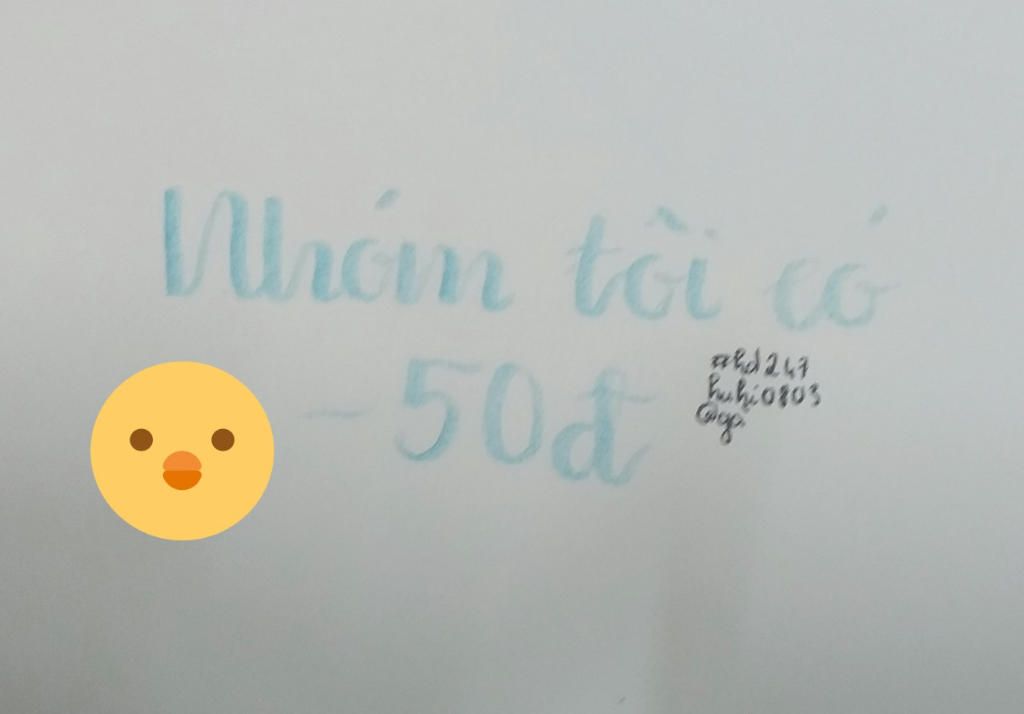 Nhóm tôi có
- 50đ
#hd247
huhi0803